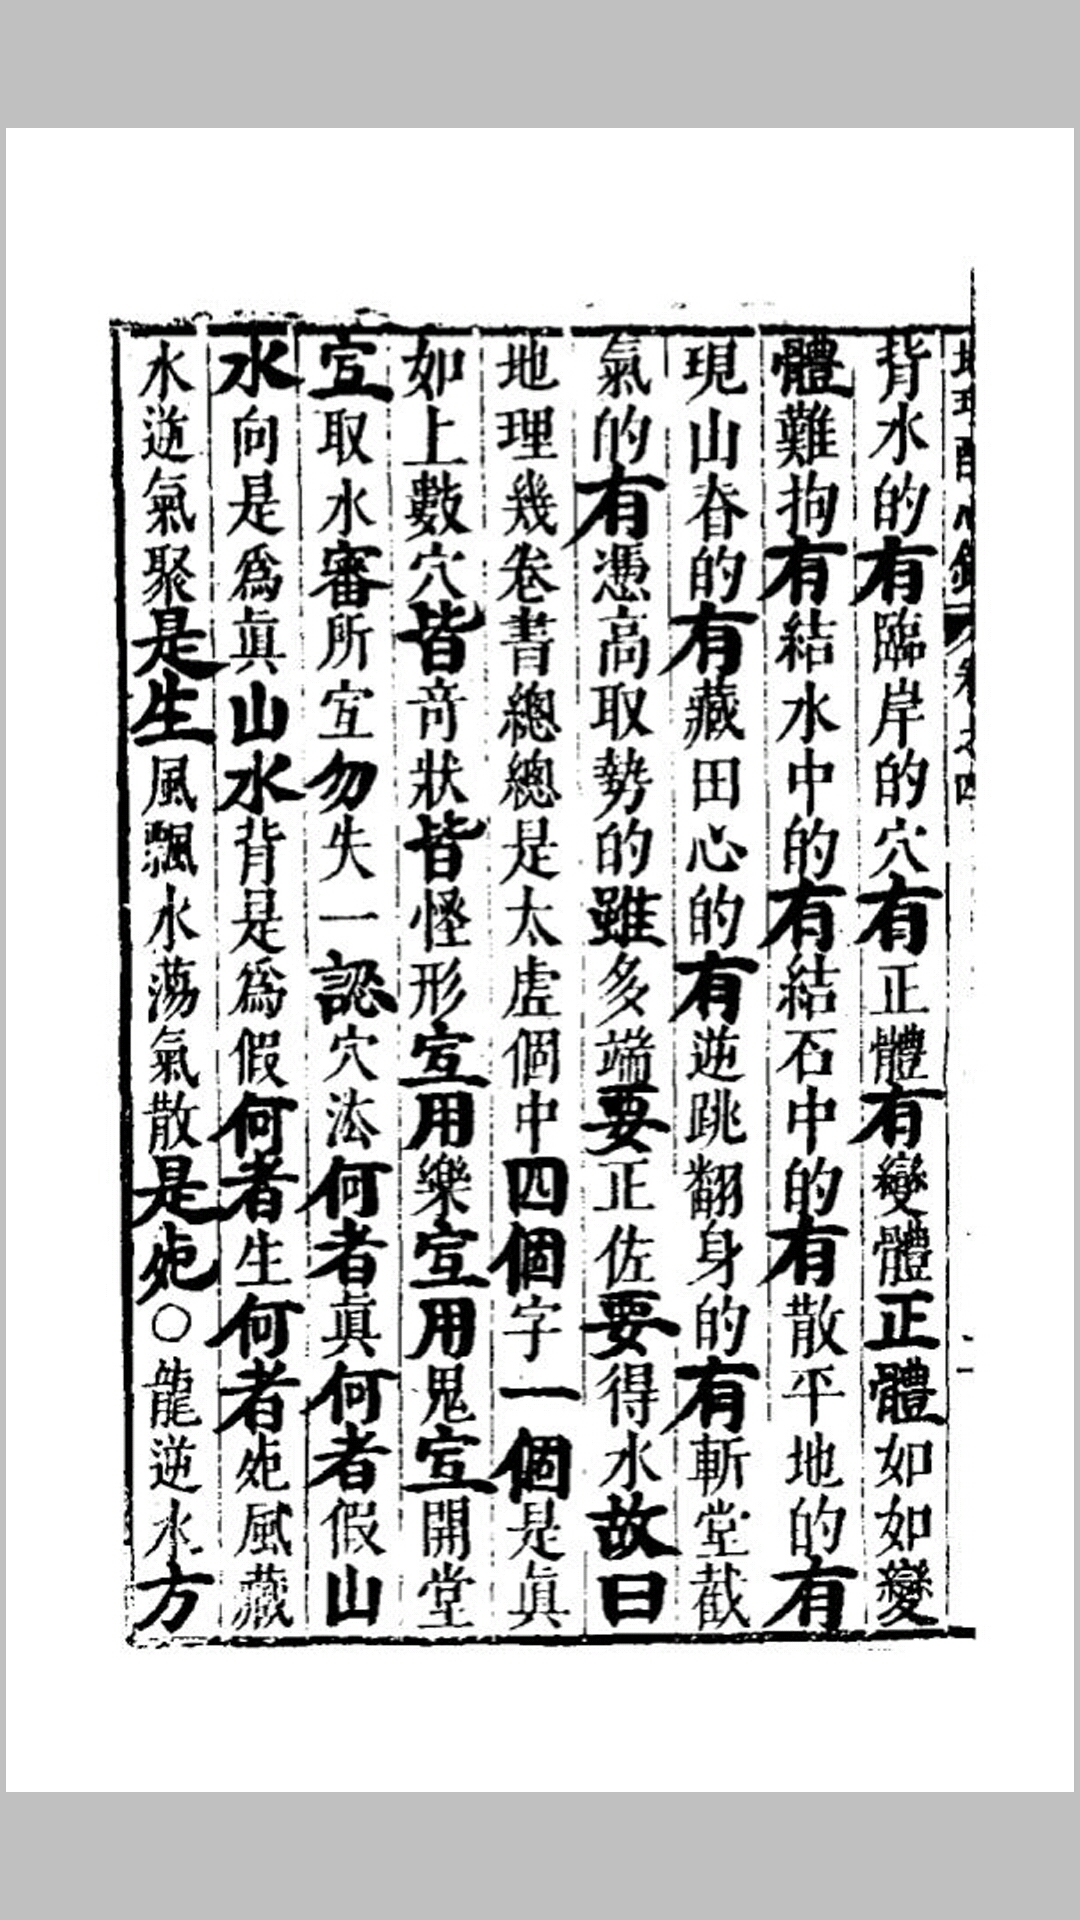 地理醒心錄 卷之四
背水的有臨岸的穴有正體有變體正體如如變
體難拘有結水中的有結石中的有散平地的有
現山脊的有藏田心的有逆跳翻身的有斬堂截
氣的有憑高取勢的雖多端要正佐要得水故曰
地理幾卷書總總是太虛個中四個字一個是眞
如上數穴皆奇狀皆怪形宜用樂宜用鬼宜開堂
宜取水審所宜勿失一認穴法何者眞何者假山
水向是爲眞山水背是爲假何者生何者死風藏
水逆氣聚是生風飄水蕩氣散是死○龍逆水方